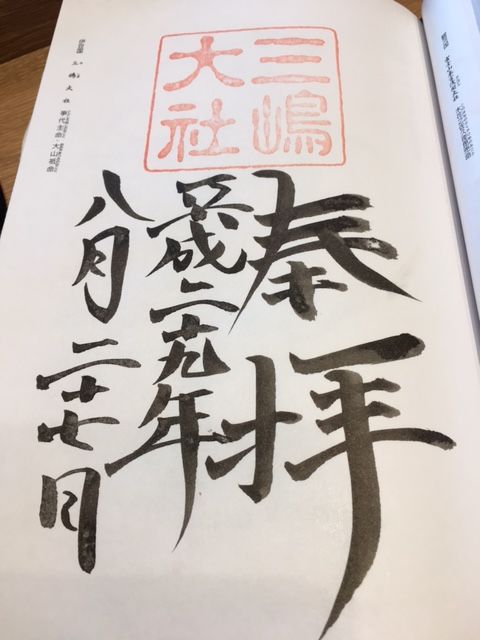 三嶋
大社
奉拝
平成二十九年
八月二十七日
伊豆国 三嶋大社 事代主命 大山祇命